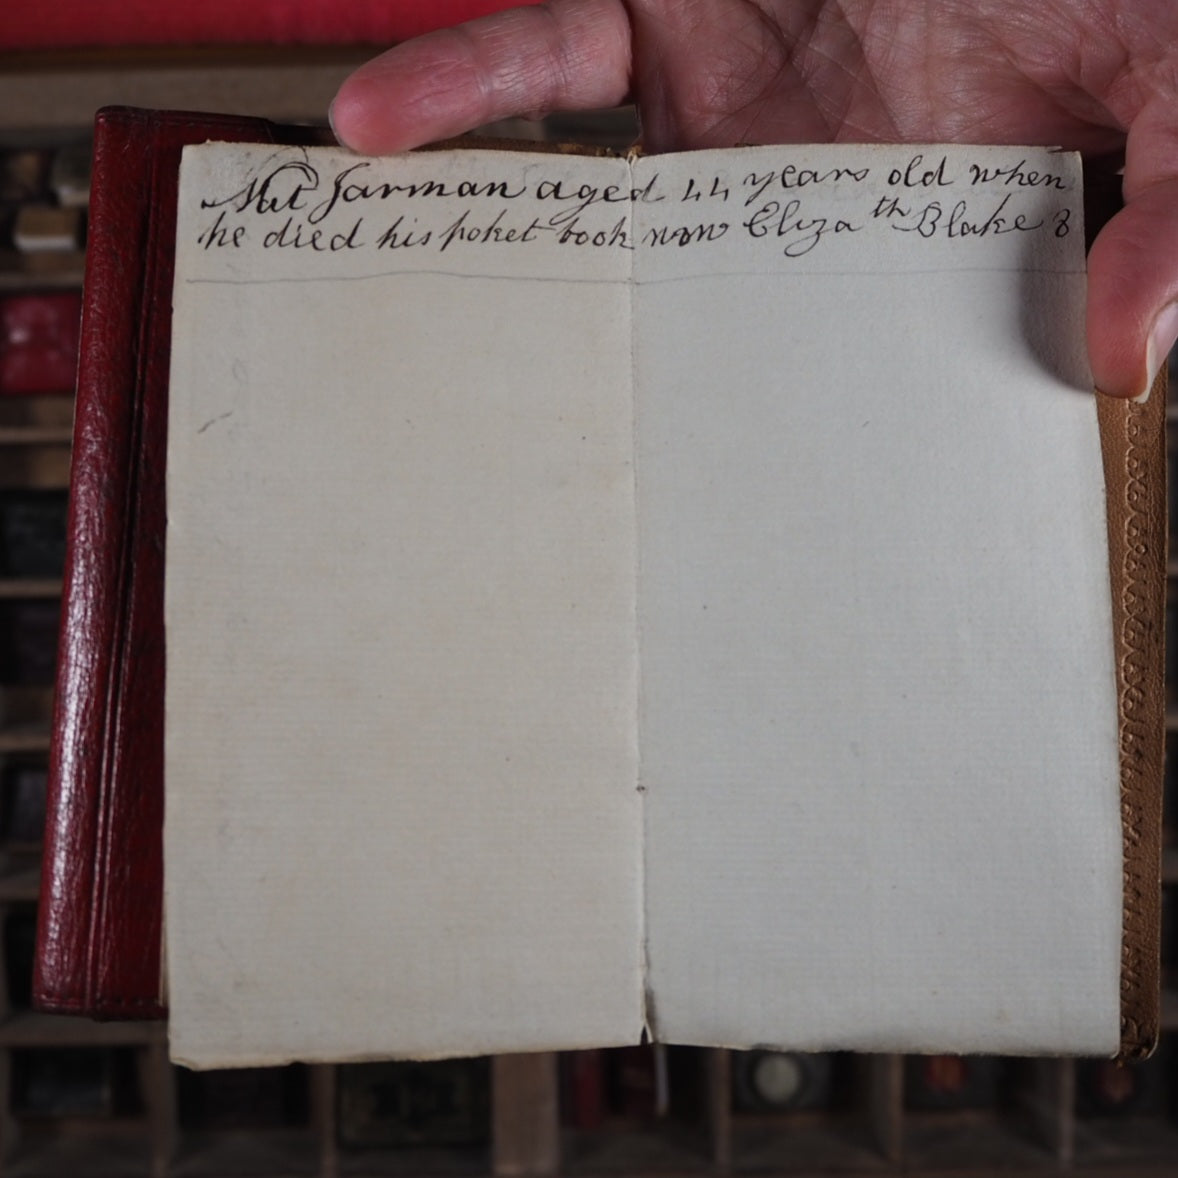 Nat Jarman aged 44 years old when
he died his poket book now Eliza th Blake 8